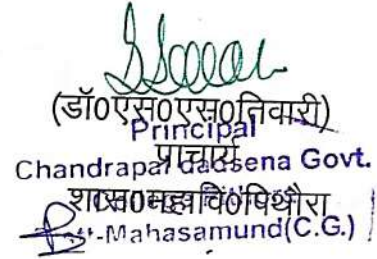 (डॉ०एस०एस०तिवारी)
Principal
प्राचार्य
Chandrapal dadsena Govt.
शास०महावि०पिथौरा
-Mahasamund(C.G.)